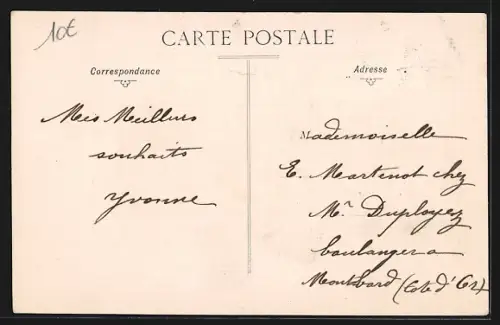 10€
CARTE POSTALE
Correspondance
Adresse
Mes Meillurs
souhaits
Yvonne
Mademoiselle
E. Martenot chez
Mr. Duployez
boulanger a
Montbard (Cote d'Or)